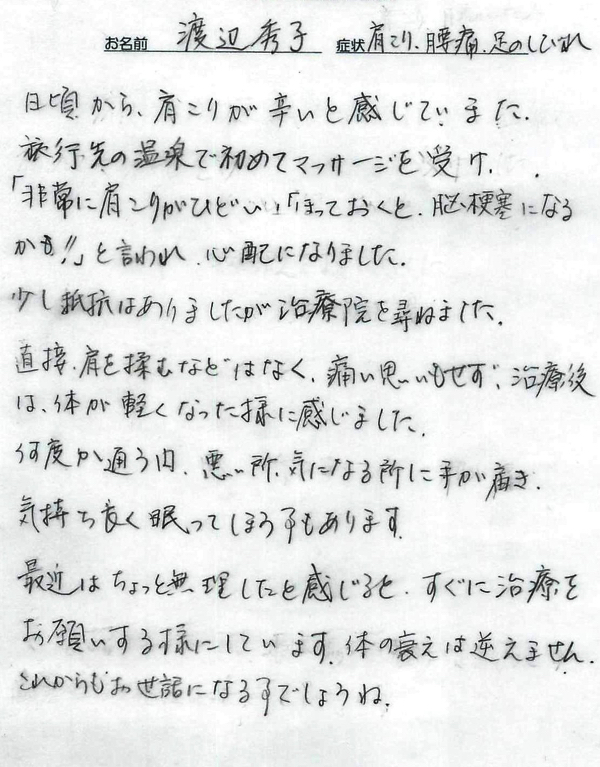 お名前 渡辺秀子 症状 肩こり、腰痛、足のしびれ
日頃から、肩こりが辛いと感じていました。
旅行先の温泉で初めてマッサージを受け、
「非常に肩こりがひどい」「ほっておくと、脳梗塞になる
かも!!」と言われ、心配になりました。
少し抵抗はありましたが治療院を尋ねました。
直接、肩を揉むなどはなく、痛い思いもせず、治療後
は、体が軽くなった様に感じました。
何度か通う内、悪い所、気になる所に手が届き、
気持ち良く眠ってしまう事もあります。
最近はちょっと無理したと感じると、すぐに治療を
お願いする様にしています。体の衰えは逆えません。
これからもお世話になる事でしょうね。